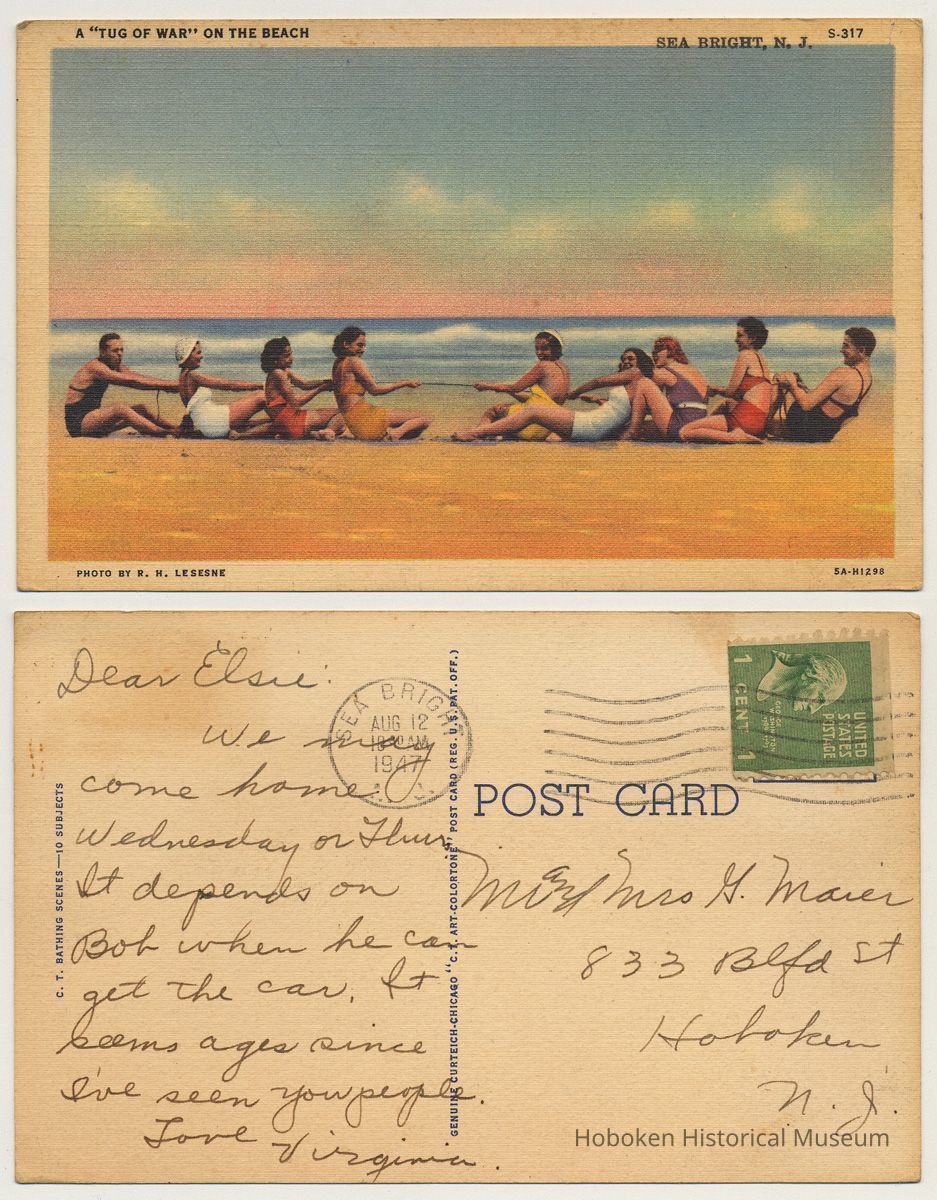 A "TUG OF WAR" ON THE BEACH
SEA BRIGHT, N. J.
S-317
PHOTO BY R. H. LESESNE
5A-H1298
Dear Elsie:
We may
come home
Wednesday or Thurs.
It depends on
Bob when he can
get the car. It
seems ages since
I've seen you people.
Love
Virginia.
C. T. BATHING SCENES—10 SUBJECTS
SEA BRIGHT
AUG 12
AM
1947
N. J.
GENUINE CURTEICH-CHICAGO "C. T. ART-COLORTONE" POST CARD (REG. U. S. PAT. OFF.)
1 CENT 1
UNITED
STATES
POSTAGE
POST CARD
Mr and Mrs G. Maier
833 Blfd St
Hoboken
N. J.
Hoboken Historical Museum